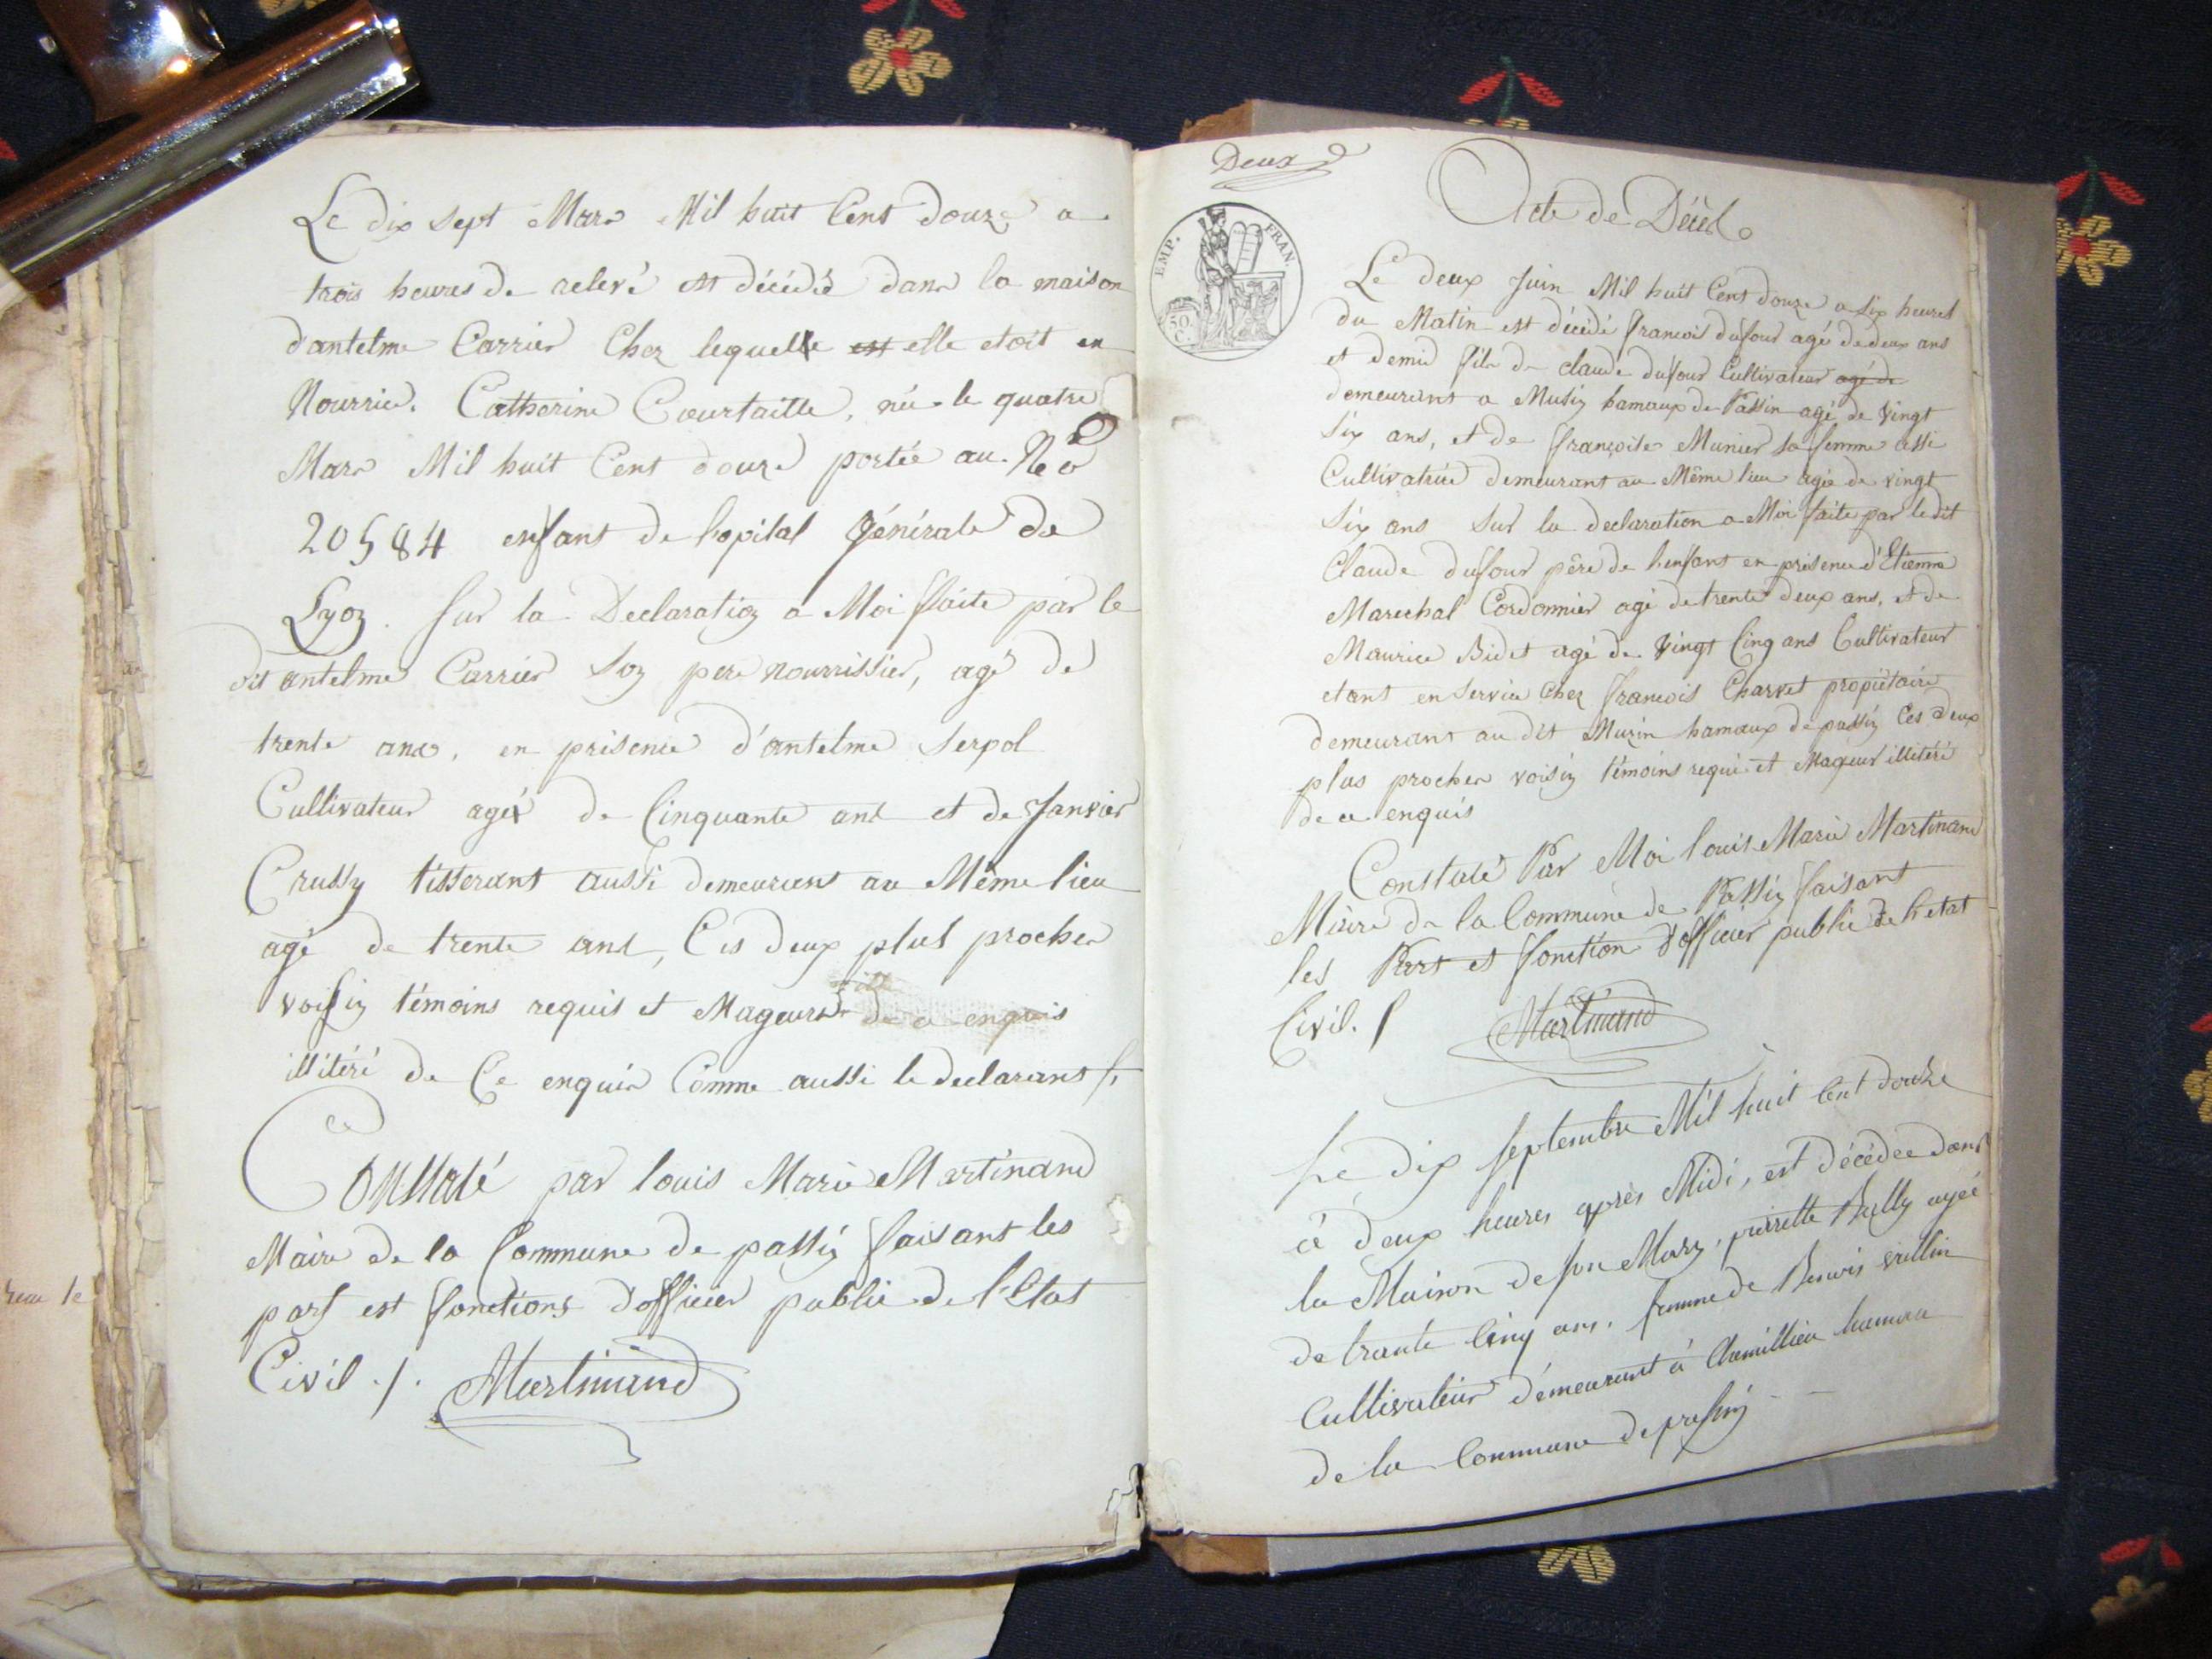 Le dix sept Mars Mil huit Cent douze a
trois heures de relevé est décédé dans la maison
d'antelme Carrier Chez lequelle est elle etoit en
Nourrice. Catherine Courtaille, née le quatre
Mars Mil huit Cent douze portée au No
20584 enfant de lopital générale de
Lyon. Sur la Declaration a Moi faite par le
dit antelme Carrier son pere nourrissier, agé de
trente ans, en présence d'antelme Serpol
Cultivateur agé de Cinquante ans et de Janvier
Crussy tisserant aussi demeurant au Même lieu
agé de trente ans, Ces deux plus proches
voisin témoins requis et Mageurs de ce enquis
illitéré de Ce enquis Comme aussi le declarant
Constaté par louis Marie Martinand
Maire de la Commune de passin faisant les
part est fonctions d'officier public de l'Etat
Civil ./. Martinand
Deux
Acte de Décès
EMP. FRAN.
50. C.
Le deux Juin Mil huit Cent douze a six heures
du Matin est décédé francois dufour agé de deux ans
et demie fils de claude dufour Cultivateur agé de
demeurant a Musin hamaux de Passin agé de vingt
six ans, et de françoise Munier sa femme assi
Cultivatrice demeurant au Même lieu agée de vingt
six ans Sur la declaration a Moi faite par le dit
Claude dufour père de l'enfant en présence d'Etienne
Marechal Cordonnier agé de trente deux ans, et de
Maurice Bidet agé de vingt Cinq ans Cultivateur
etant en service Chez francois Charvet propiétaire
demeurant au dit Muzin hamaux de passin Ces deux
plus proches voisin témoins requis et Mageur illitéré
de ce enquis
Constaté Par Moi louis Marie Martinand
Maire de la Commune de Passin faisant
les Part et fonction d'officier public de l'etat
Civil. / Martinand
Le dix septembre Mil huit Cent douze
à deux heures après Midi, est décédée dans
la Maison de son Mary, pierrette Bully agée
de trante Cinq ans, femme de Benois vullin
Cultivateur démeurant à Chemillieu hamau
de la Commune de passin